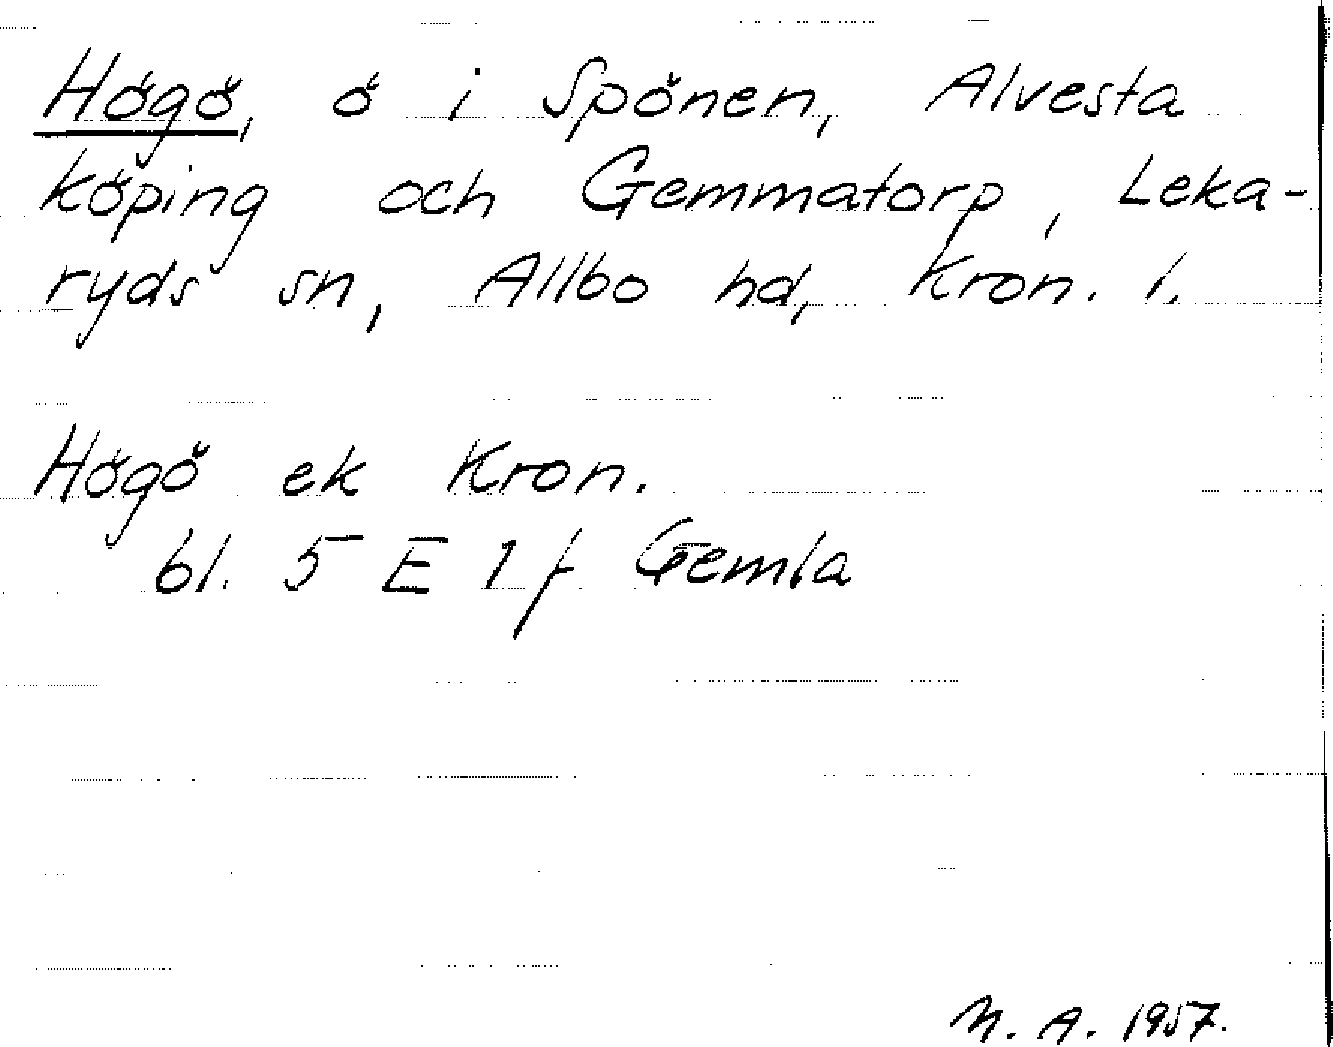 Högö, ö i Spönen, Alvesta
köping och Gemmatorp, Leka-
ryds sn, Allbo hd, Kron. l.
Högö ek Kron.
bl. 5 E 1 f Gemla
M. A. 1957.